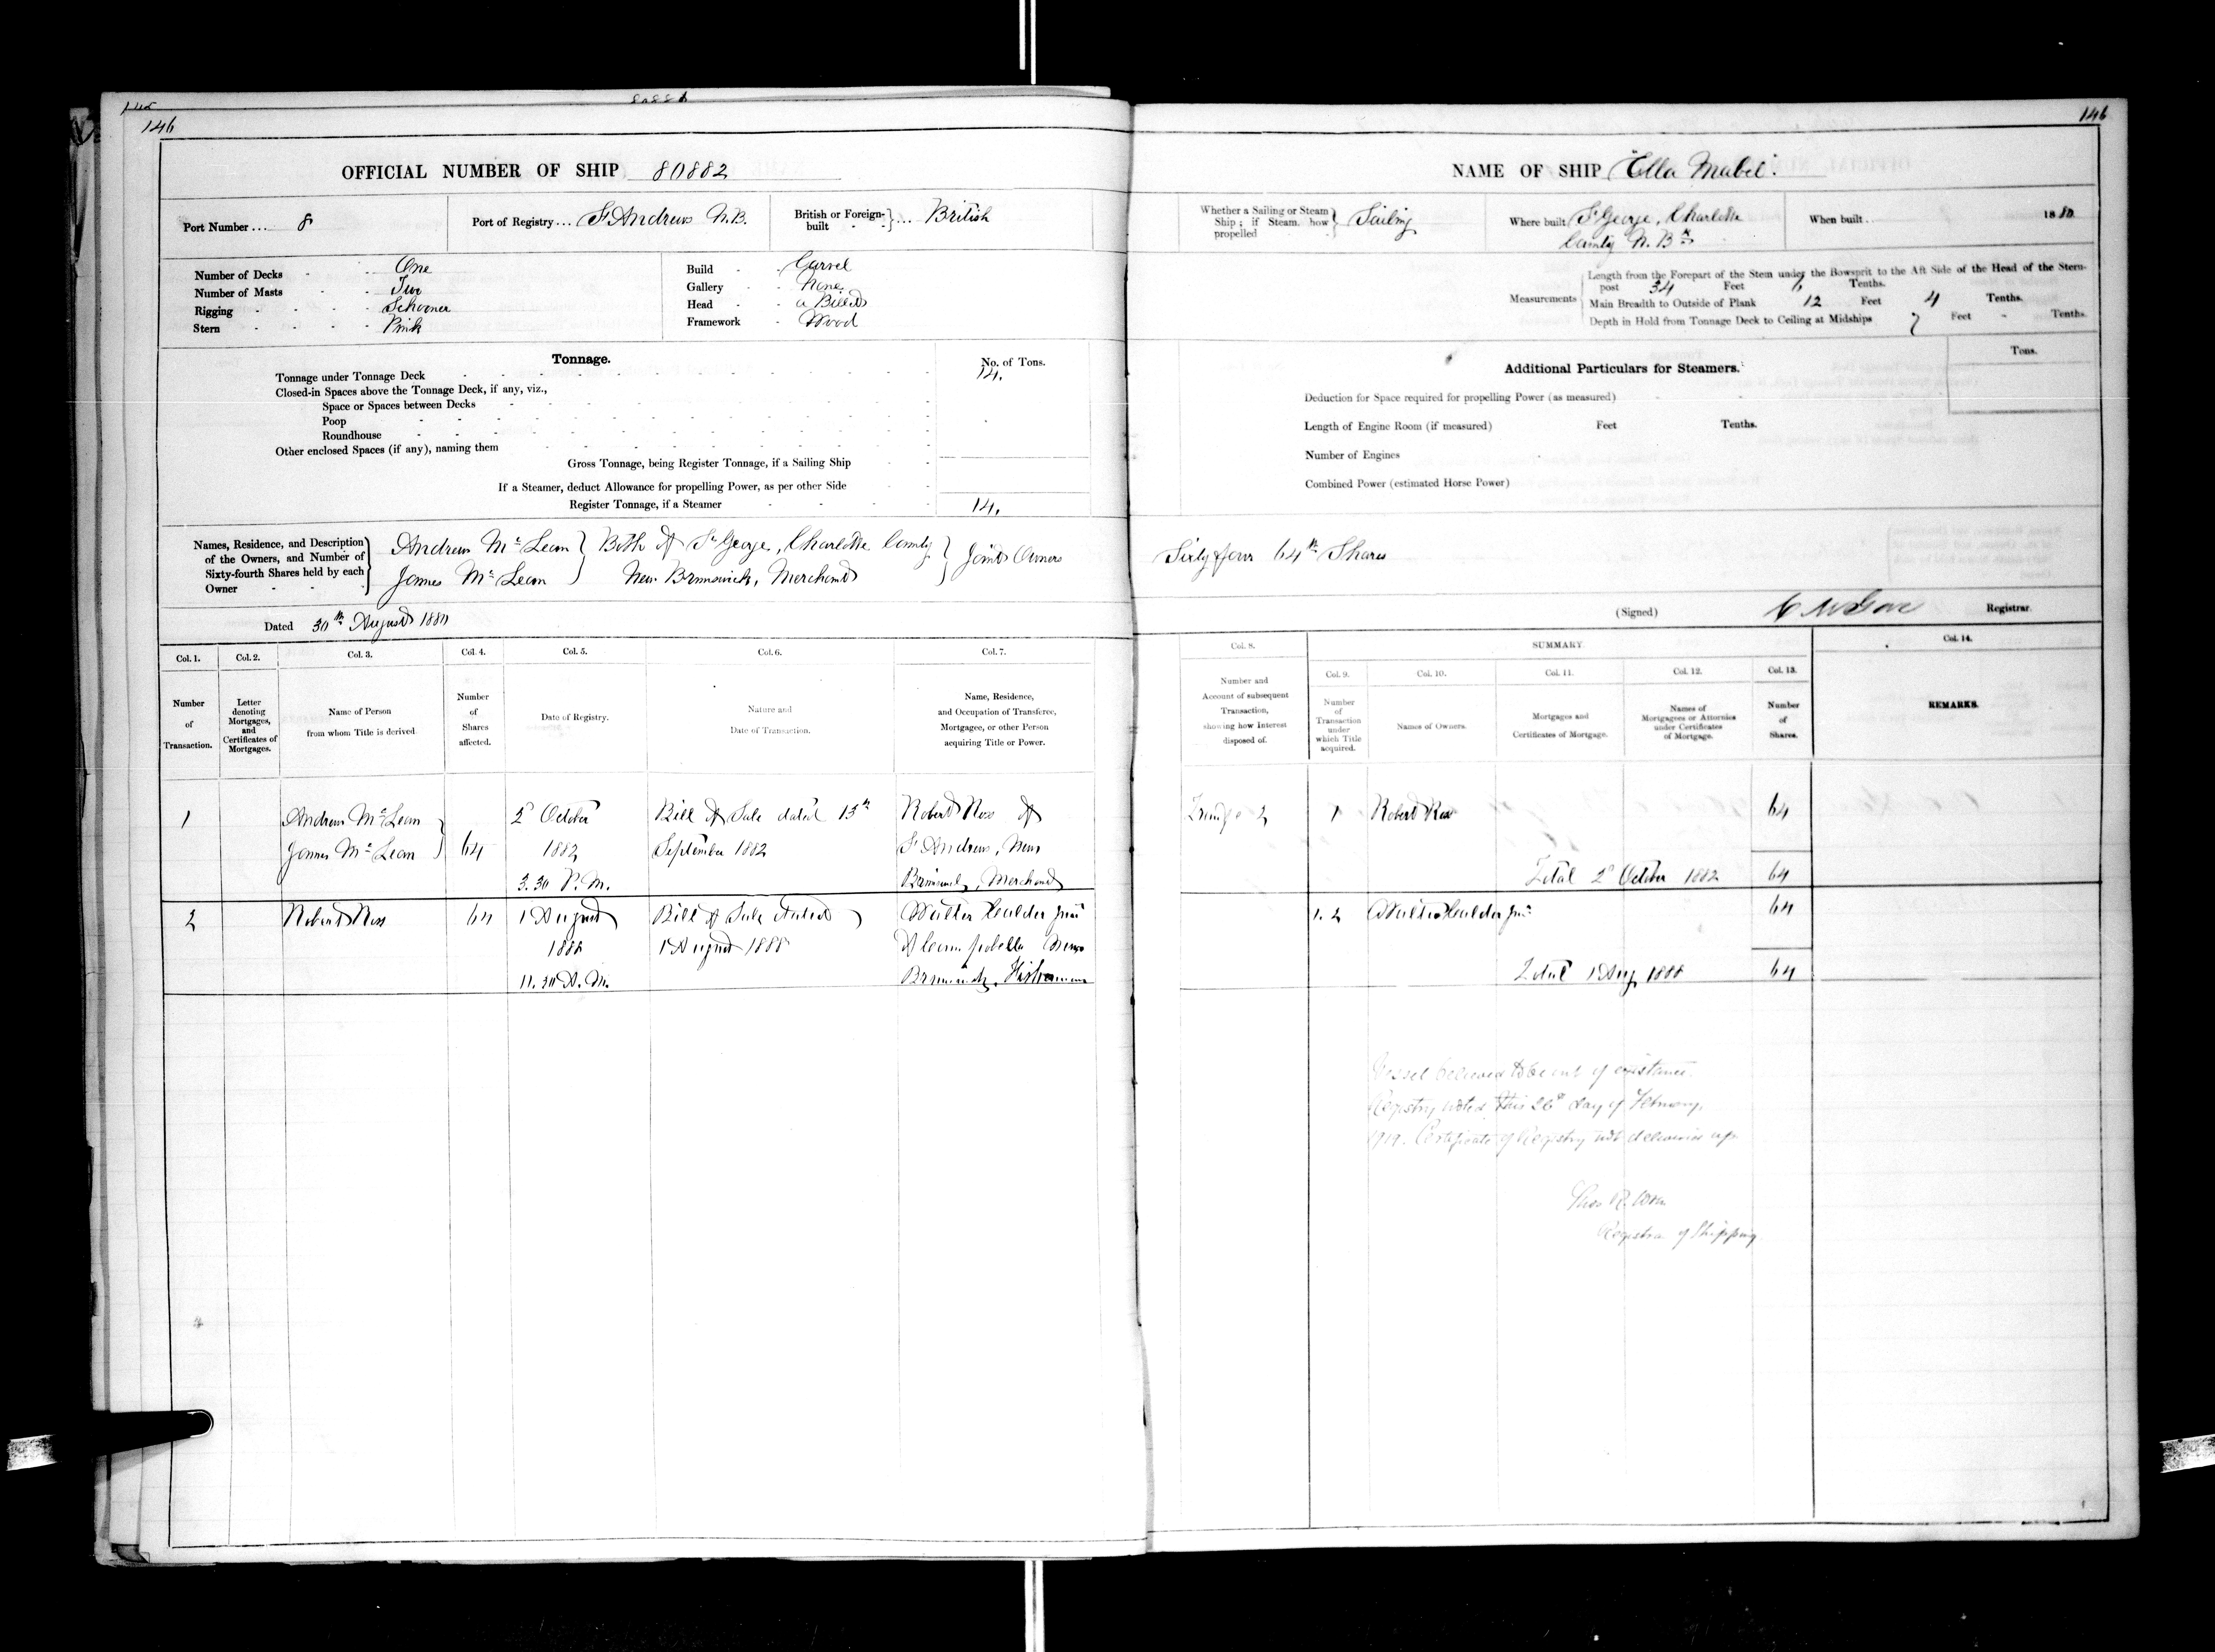 146
146
OFFICIAL NUMBER OF SHIP 80882
NAME OF SHIP "Ella Mabel"
Port Number... 8
Port of Registry... St Andrews N.B.
British or Foreign-built } ... British
Whether a Sailing or Steam Ship; if Steam, how propelled } Sailing
Where built St George, Charlotte
County N. Bk
When built.. 1880
Number of Decks - - One
Number of Masts - - Two
Rigging - - - - Schooner
Stern - - - - Pink
Build - - Carvel
Gallery - - None
Head - - a Billet
Framework - Wood
Measurements
Length from the Forepart of the Stem under the Bowsprit to the Aft Side of the Head of the Stern-
post 34 Feet 6 Tenths.
Main Breadth to Outside of Plank 12 Feet 4 Tenths.
Depth in Hold from Tonnage Deck to Ceiling at Midships 7 Feet - Tenths.
Tonnage.
No. of Tons.
Tonnage under Tonnage Deck 14.
Closed-in Spaces above the Tonnage Deck, if any, viz.,
Space or Spaces between Decks
Poop
Roundhouse
Other enclosed Spaces (if any), naming them
Gross Tonnage, being Register Tonnage, if a Sailing Ship
If a Steamer, deduct Allowance for propelling Power, as per other Side
Register Tonnage, if a Steamer 14.
Tons.
Additional Particulars for Steamers.
Deduction for Space required for propelling Power (as measured)
Length of Engine Room (if measured) Feet Tenths.
Number of Engines
Combined Power (estimated Horse Power)
Names, Residence, and Description
of the Owners, and Number of
Sixty-fourth Shares held by each
Owner
Andrew McLean } Both of St George, Charlotte County } Joint Owners Sixty four 64th Shares
James McLean } New Brunswick, Merchants
Dated 30th August 1880
(Signed) Registrar.
Col. 1. Col. 2. Col. 3. Col. 4. Col. 5. Col. 6. Col. 7.
Number of Transaction.
Letter denoting Mortgages, and Certificates of Mortgages.
Name of Person from whom Title is derived
Number of Shares affected.
Date of Registry.
Nature and Date of Transaction.
Name, Residence, and Occupation of Transferee, Mortgagee, or other Person acquiring Title or Power.
Col. 8.
SUMMARY.
Col. 14.
Col. 9. Col. 10. Col. 11. Col. 12. Col. 13.
Number and Account of subsequent Transaction, showing how Interest disposed of.
Number of Transaction under which Title acquired.
Names of Owners.
Mortgages and Certificates of Mortgage.
Names of Mortgagees or Attornies under Certificates of Mortgage.
Number of Shares.
REMARKS.
1 Andrew McLean 2d October Bill of Sale dated 13th Robert Ross of
James McLean } 64 1882 September 1882 St Andrews, New
3.30 P.M. Brunswick, Merchant
2 Robert Ross 64 1 August Bill of Sale dated Walter Calder Junr
1888 1 August 1888 of Campobello New
11.30 A.M. Brunswick, Fisherman
2 1 Robert Ross 64
Total 2d October 1882 64
1. 2 Walter Calder Junr 64
Total 1 Aug 1888 64
Vessel believed to be out of existence.
Registry noted this 26th day of February,
1919. Certificate of Registry not delivered up.
Thos R. Wren
Registrar of Shipping